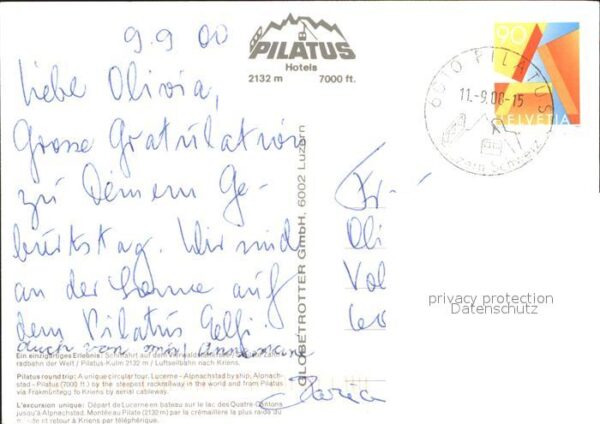 9.9 00
PILATUS
Hotels
2132 m 7000 ft.
90
HELVETIA
6010 PILATUS
11.-9.00-15
Liebe Olivia,
Grosse Gratulation
zu Deinem Ge-
burtstag. Wir sind
an der Sonne auf
dem Pilatus
auch von mir Annemarie
Maria
Oli
Vol
GLOBETROTTER GmbH, 6002 Luzern
privacy protection
Datenschutz
Ein einzigartiges Erlebnis: Schiffahrt auf dem
radbahn der Welt / Pilatus-Kulm 2132 m / Luftseilbahn nach Kriens.
Pilatus round trip: A unique circular tour. Lucerne - Alpnachstad by ship, Alpnach-
stad - Pilatus (7000 ft.) by the steepest rackrailway in the world and from Pilatus
via Fräkmüntegg to Kriens by aerial cableway.
L'excursion unique: Départ de Lucerne en bateau sur le lac des Quatre-Cantons
jusqu'à Alpnachstad. Montée au Pilate (2132 m) par la crémaillère la plus raide du
et retour à Kriens par téléphérique.